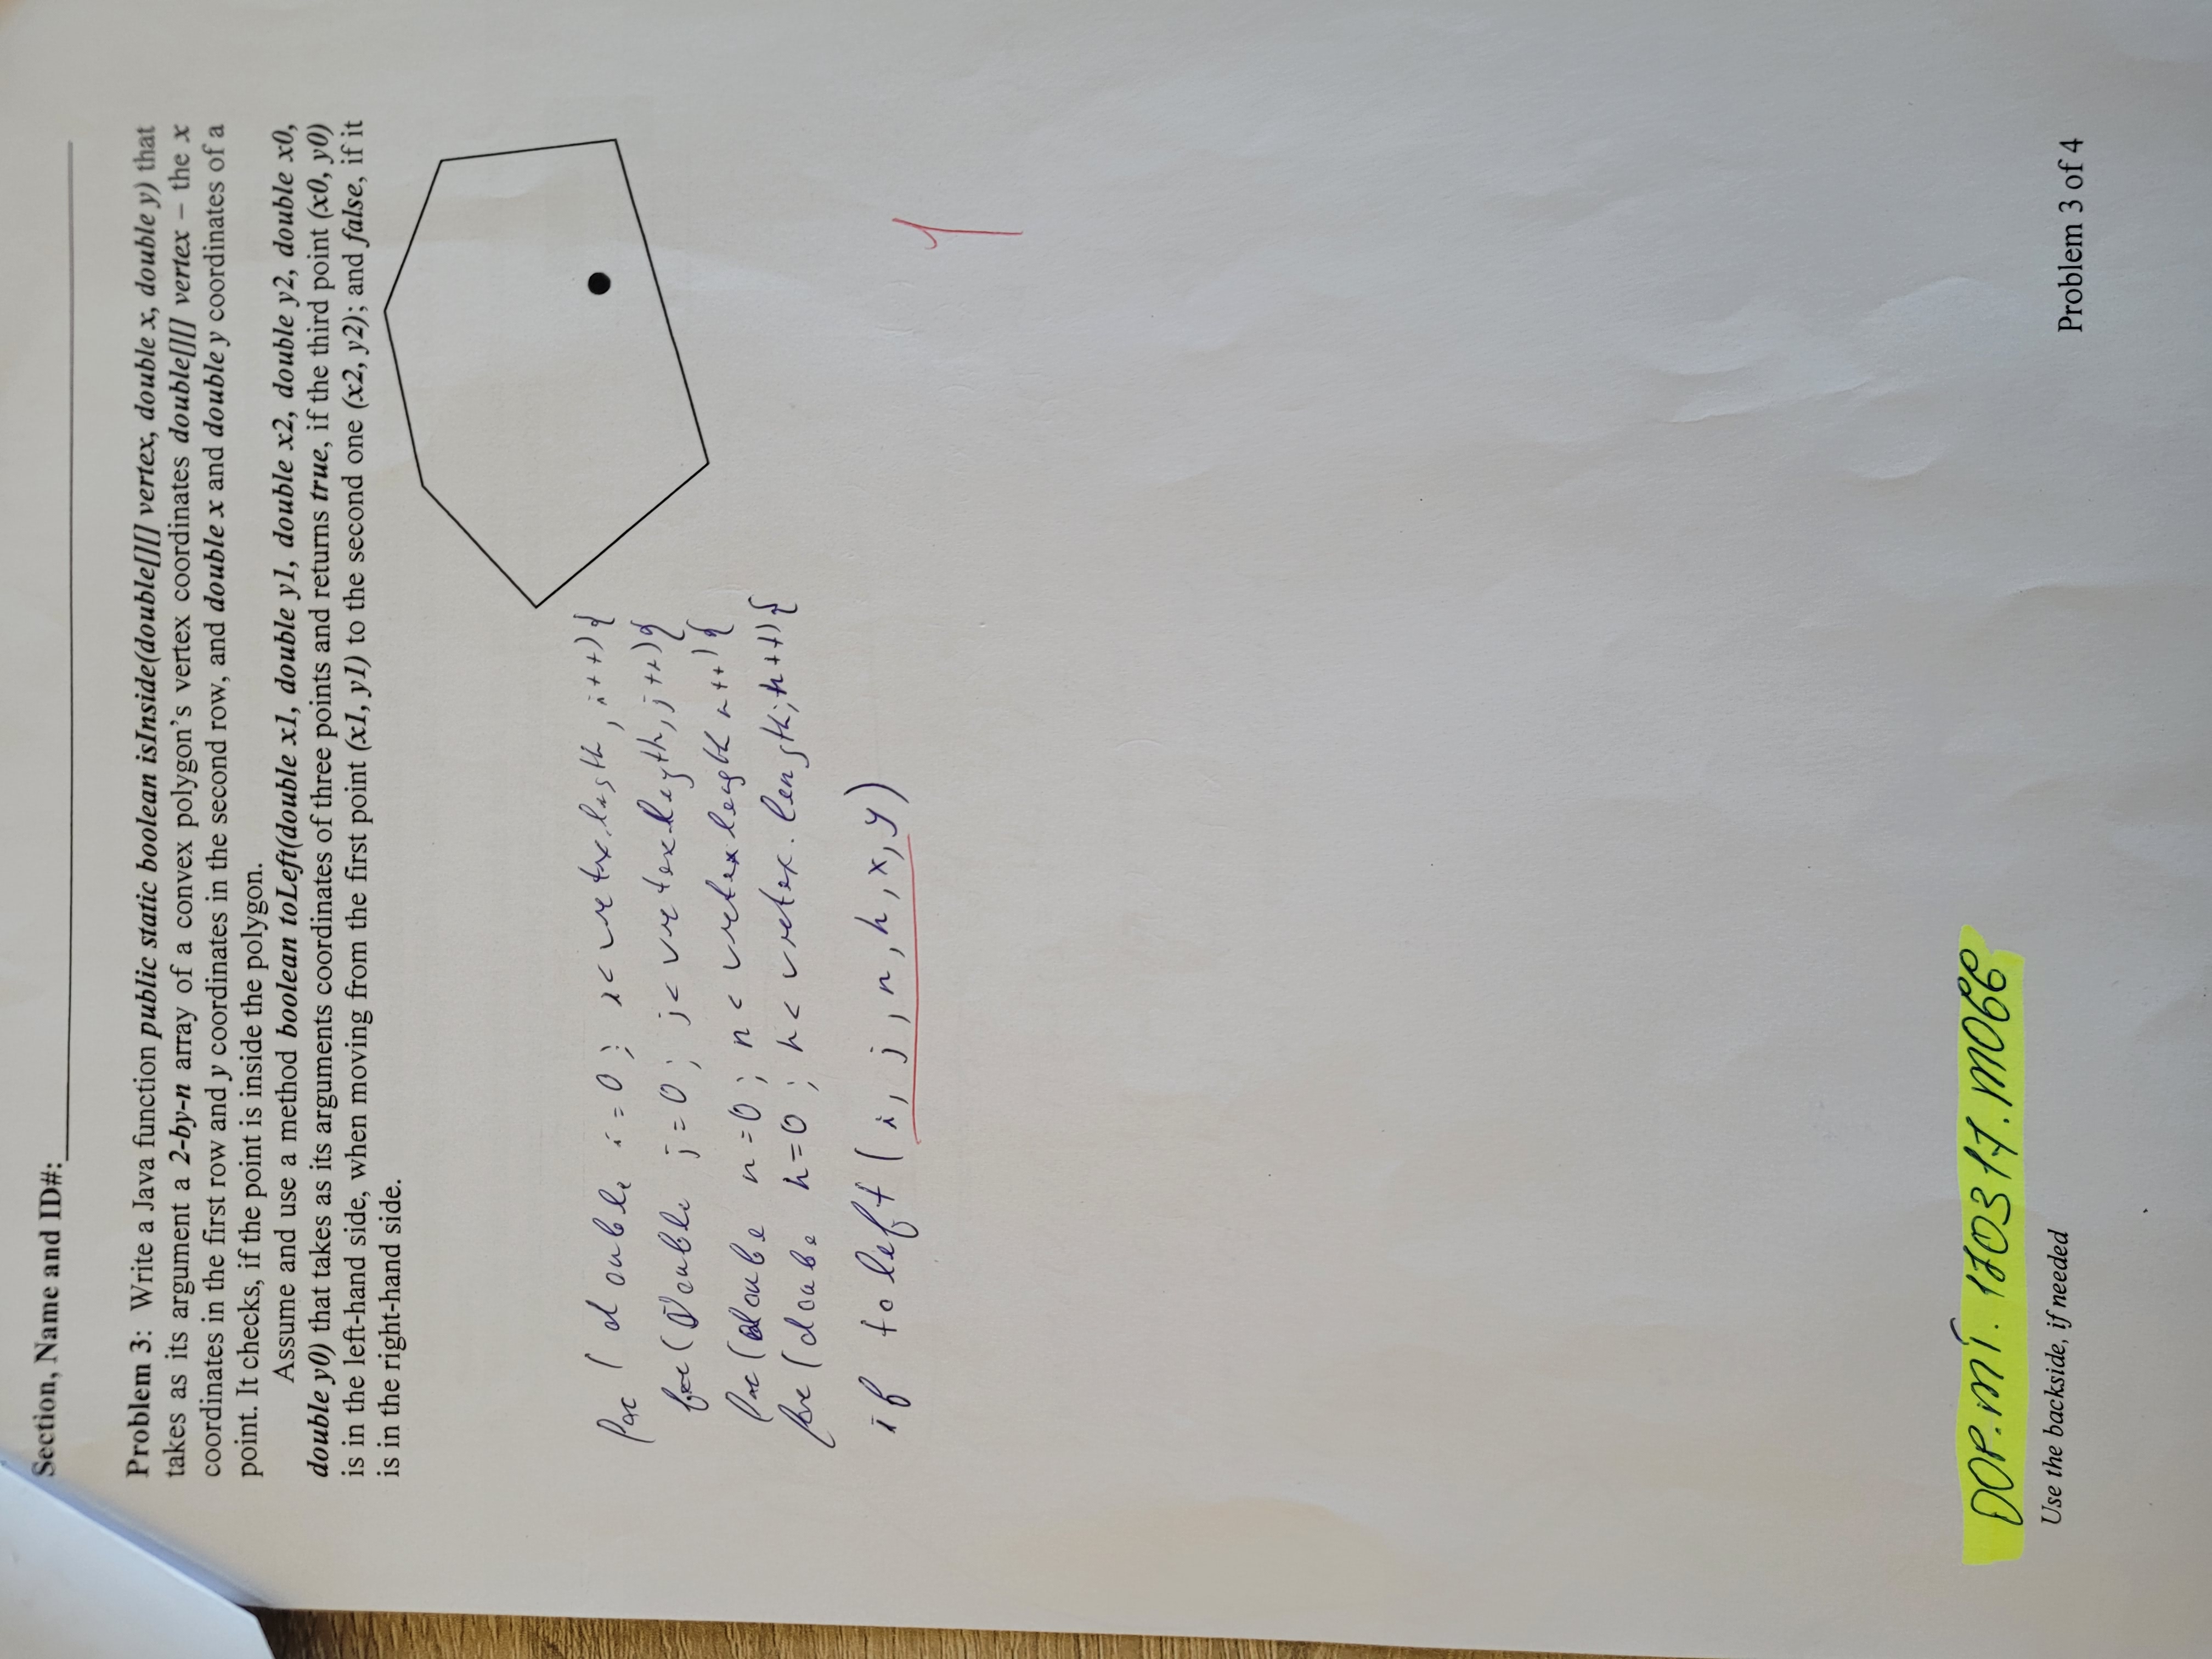 Section, Name and ID#:
Problem 3: Write a Java function public static boolean isInside(double[][] vertex, double x, double y) that
takes as its argument a 2-by-n array of a convex polygon's vertex coordinates double[][] vertex – the x
coordinates in the first row and y coordinates in the second row, and double x and double y coordinates of a
point. It checks, if the point is inside the polygon.
Assume and use a method boolean toLeft(double x1, double y1, double x2, double y2, double x0,
double y0) that takes as its arguments coordinates of three points and returns true, if the third point (x0, y0)
is in the left-hand side, when moving from the first point (x1, y1) to the second one (x2, y2); and false, if it
is in the right-hand side.
( double i = 0 ; i < , i++) {
for ( Double j = 0 ; j < , j++) {
( n = 0 ; n < length n++) {
for ( h = 0 ; h < . length ; h++) {
if to left ( i, j, n, h, x, y)
1
Use the backside, if needed
Problem 3 of 4